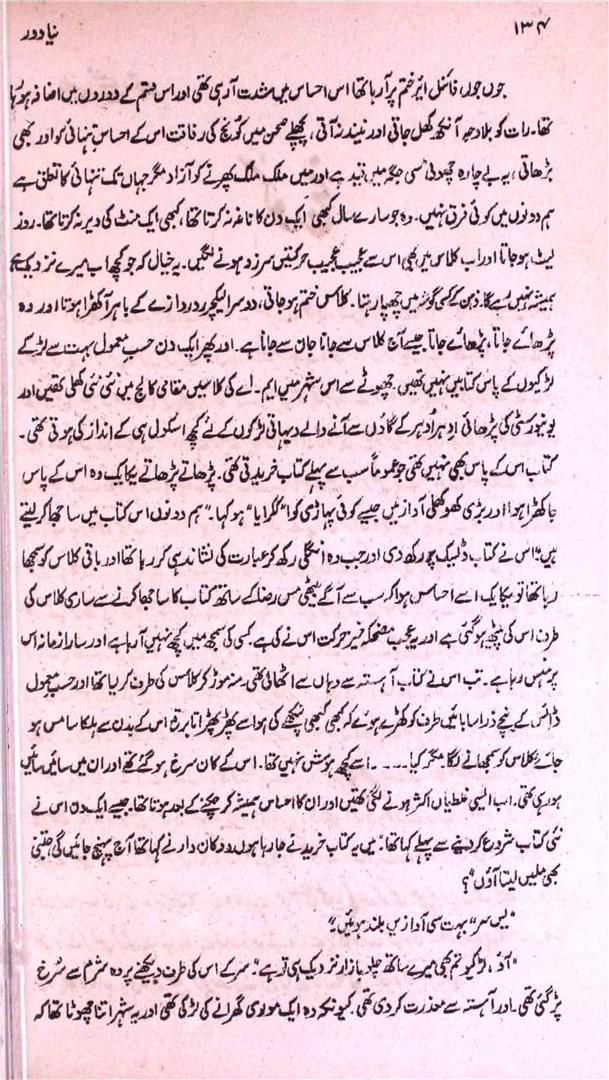 ۱۳۴
نیا دور
جوں جوں فائنل ایئر ختم پر آ رہا تھا اس احساس میں شدت آ رہی تھی اور اس قسم کے دوروں میں اضافہ ہو رہا
تھا۔ رات کو بلا وجہ آنکھ کھل جاتی اور نیند نہ آتی، پچھلے صحن میں کونج کی رفاقت اس کے احساسِ تنہائی کو اور بھی
بڑھاتی، یہ بے چارہ چھوٹی سی جگہ میں قید ہے اور میں ملک ملک پھرنے کو آزاد مگر جہاں تک تنہائی کا تعلق ہے
ہم دونوں میں کوئی فرق نہیں۔ وہ جو سارے سال کبھی ایک دن کا ناغہ نہ کرتا تھا، کبھی ایک منٹ کی دیر نہ کرتا تھا۔ روز
لیٹ ہو جاتا اور اب کلاس میں بھی اس سے عجیب عجیب حرکتیں سرزد ہونے لگیں۔ یہ خیال کہ جو کچھ اب میرے نزدیک ہے
ہمیشہ نہیں رہے گا۔ ذہن کے کسی گوشے میں چھپا رہتا۔ کلاس ختم ہو جاتی، دوسرا لیکچرر دروازے کے باہر آ کھڑا ہوتا اور وہ
پڑھائے جاتا، پڑھائے جاتا جیسے آج کلاس سے جانا جان سے جانا ہے۔ اور پھر ایک دن حسبِ معمول بہت سے لڑکے
لڑکیوں کے پاس کتابیں نہیں تھیں۔ چھوٹے سے اس شہر میں ایم۔ اے کی کلاسیں مقامی کالج میں نئی نئی کھلی تھیں اور
یونیورسٹی کی پڑھائی ادھر اُدھر کے گاؤں سے آنے والے دیہاتی لڑکوں کے لئے کچھ اسکول ہی کے انداز کی ہوتی تھی۔
کتاب اس کے پاس بھی نہیں تھی جو عموماً سب سے پہلے کتاب خریدتی تھی۔ پڑھاتے پڑھاتے یکایک وہ اس کے پاس
جا کھڑا ہوا اور بڑی کھوکھلی آواز میں جیسے کوئی پہاڑی کوا "گگرایا" ہو کہا۔ "ہم دونوں اس کتاب میں ساجھا کر لیتے
ہیں" اس نے کتاب ڈیسک پر رکھ دی اور جب وہ انگلی رکھ کر عبارت کی نشاندہی کر رہا تھا اور باقی کلاس کو سمجھا
رہا تھا تو یکایک اسے احساس ہوا کہ سب سے آگے بیٹھی مس رضا کے ساتھ کتاب کا ساجھا کرنے سے ساری کلاس کی
طرف اس کی پیٹھ ہو گئی ہے اور یہ عجب مضحکہ خیز حرکت اس نے کی ہے۔ کسی کی سمجھ میں کچھ نہیں آ رہا ہے اور سارا زمانہ اس
پر ہنس رہا ہے۔ تب اس نے کتاب آہستہ سے وہاں سے اٹھائی تھی۔ منہ موڑ کر کلاس کی طرف کر لیا تھا اور حسبِ معمول
ڈائس کے نیچے ذرا سا بائیں طرف کو کھڑے ہوئے کہ کبھی کبھی پنکھے کی ہوا سے پھڑپھڑاتا برقع اس کے بدن سے ہلکا سا مس ہو
جائے، کلاس کو سمجھانے لگا مگر کیا ۔۔۔۔ اسے کچھ ہوش نہیں تھا۔ اس کے کان سرخ ہو گئے تھے اور ان میں سائیں سائیں
ہو رہی تھی۔ اب ایسی غلطیاں اکثر ہونے لگی تھیں اور ان کا احساس ہمیشہ کر چکنے کے بعد ہوتا تھا۔ جیسے ایک دن اس نے
نئی کتاب شروع کر دینے سے پہلے کہا تھا۔ "میں یہ کتاب خریدنے جا رہا ہوں، دوکان دار نے کہا تھا آج پہنچ جائیں گی، جتنی
بھی ملیں لیتا آؤں"؟
"یس سر" بہت سی آوازیں بلند ہوئیں۔
"آؤ، لڑکیو تم بھی میرے ساتھ چلو بازار نزدیک ہی تو ہے"۔ سر کے اس کی طرف دیکھنے پر وہ شرم سے سُرخ
پڑ گئی تھی۔ اور آہستہ سے معذرت کر دی تھی۔ کیونکہ وہ ایک مولوی گھرانے کی لڑکی تھی اور یہ شہر اتنا چھوٹا تھا کہ